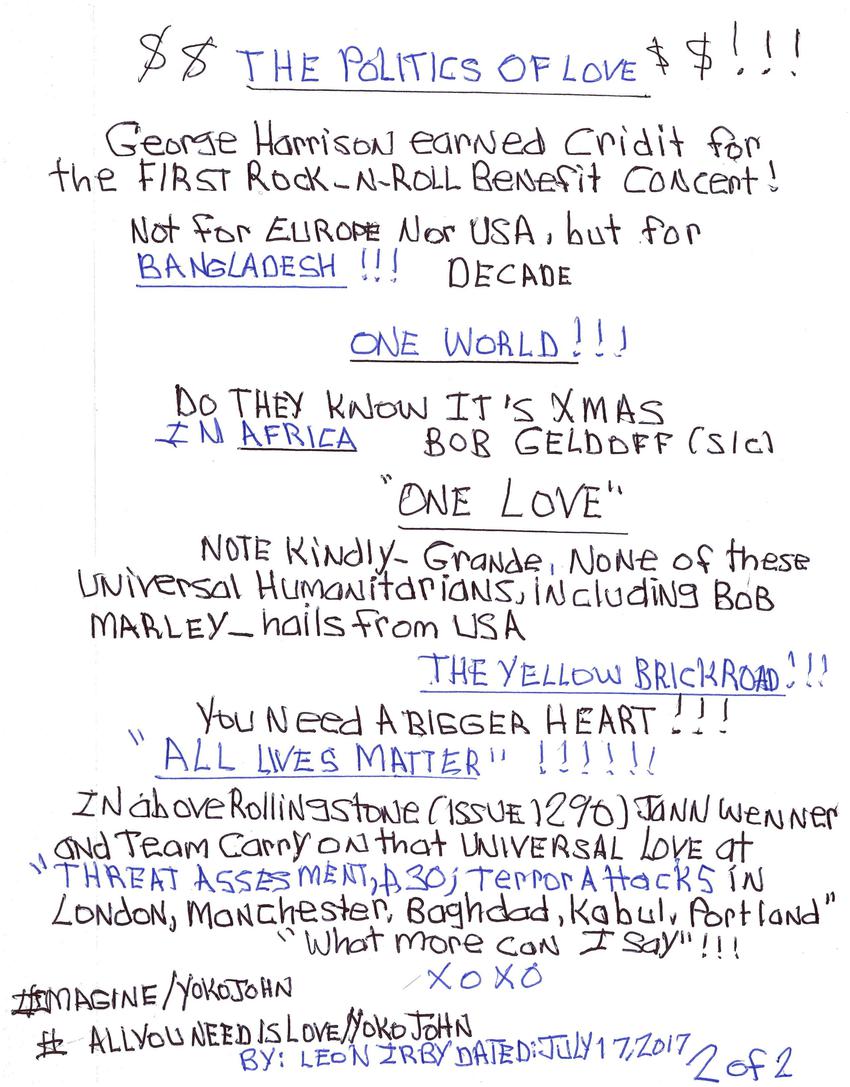 $ $ THE POLITICS OF LOVE $ $ ! ! !
George Harrison earned Cridit for
the FIRST ROCK-N-ROLL Benefit CONCENT!
Not for EUROPE Nor USA, but for
BANGLADESH !!! DECADE
ONE WORLD !!!
DO THEY KNOW IT'S XMAS
IN AFRICA BOB GELDOFF (SIC)
"ONE LOVE"
NOTE Kindly- Grande, NONE of these
UNiversal HumaNitdriANs, including BOB
MARLEY- hails from USA
THE YELLOW BRICKROAD!!!
YOU Need A BIGGER HEART !!!
"ALL LIVES MATTER" !!!!!!
IN above RolliNgstoNe (ISSUE 1290) JANN WeNNer
and Team Carry on that UNIVERSAL LOVE at
"THREAT ASSESMENT, p.30; Terror Attacks IN
LONDON, Manchester, Baghdad, Kabul, Portland"
"What more can I say"!!!
XOXO
#IMAGINE/YOKOJOHN
# ALLYOUNEEDISLOVE/YOKOJOHN
BY: LEON IRBY DATED: JULY 17, 2017 2 of 2